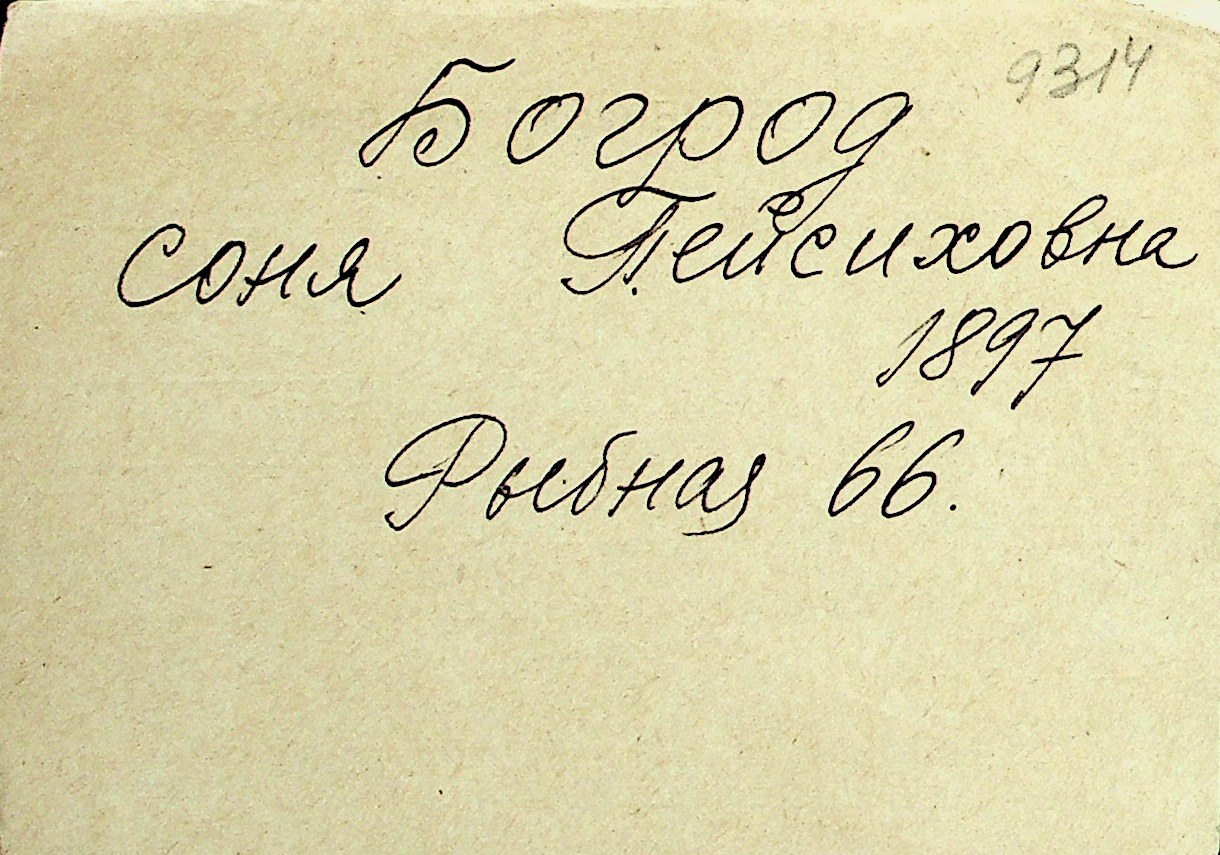 9314
Богрод
Соня Пейсиховна
1897
Рыбная 66.